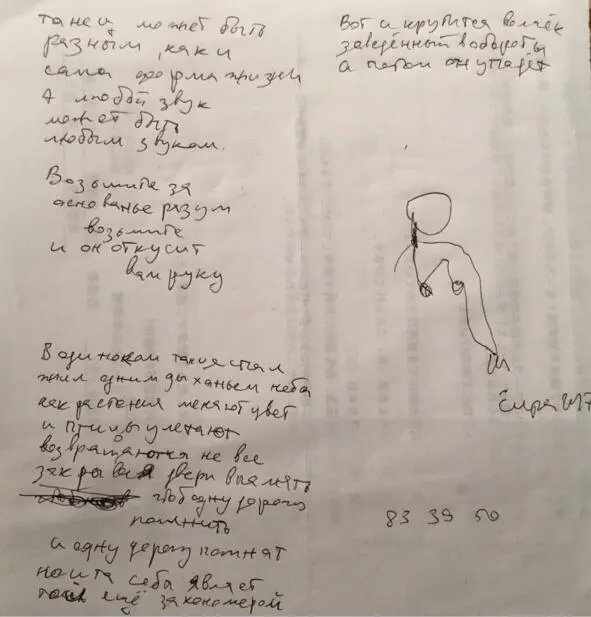 танец может быть
разным, как и
сама форма жизни
А любой звук
может быть
любым звуком.
Возьмите за
основанье разум
возьмите
и он откусит
вам руку
В одиноком
жил одним дыханьем неба
как растения меняют цвет
и птицы улетают
возвращаются не все
закрывая двери
чтоб одну дорогу
помнить
и одну дорогу помнят
себя являет
ещё закономерой
Вот и крутится волчёк
заведённый в обороты
а потом он упадёт
83 39 50